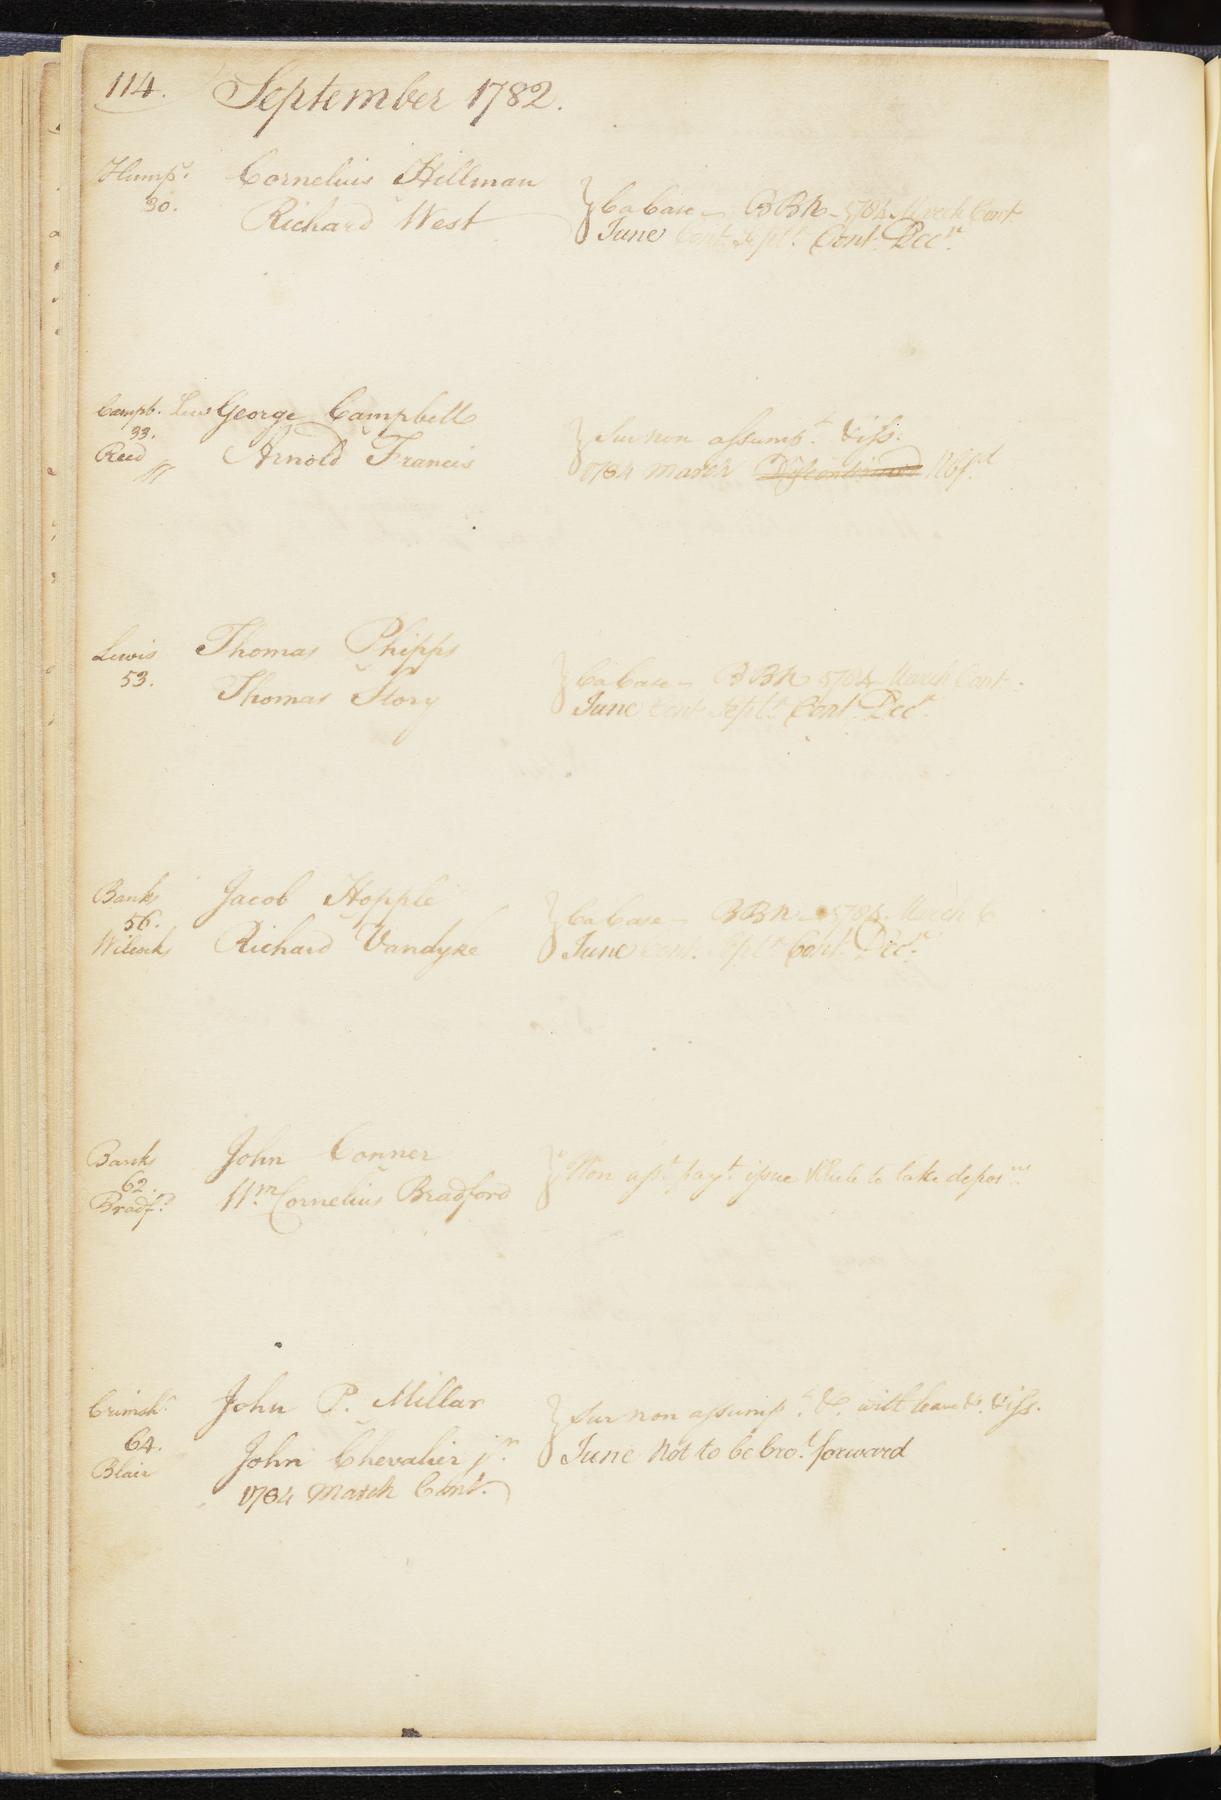 114. September 1782.
Humps. Cornelius Hillman
30. Richard West
Ca Case - BBR - 1784 March Cont
June Cont. Septr. Cont. Decr.
Campb. Lew George Campbell
33.
Reed Arnold Francis
Sur non assumpt. & iss.
1784 March Discontinued
Lewis Thomas Phipps
53. Thomas Story
Ca Case - BBR 1784 March Cont.
June Cont Septr. Cont. Decr.
Banks Jacob Hopple
56.
Wilcocks Richard Vandyke
Ca Case - BBR - 1784 March C
June Cont. Septr. Cont. Decr.
Banks John Conner
62.
Bradfd. Wm. Cornelius Bradford
Non asst. payt. issue & Rule to take depos
Crimsh. John P. Millar
64.
Blair John Chevalier jn.
1784 March Cont.
Sur non assumpt. &c. with leave &c. & iss.
June Not to be brot. forward